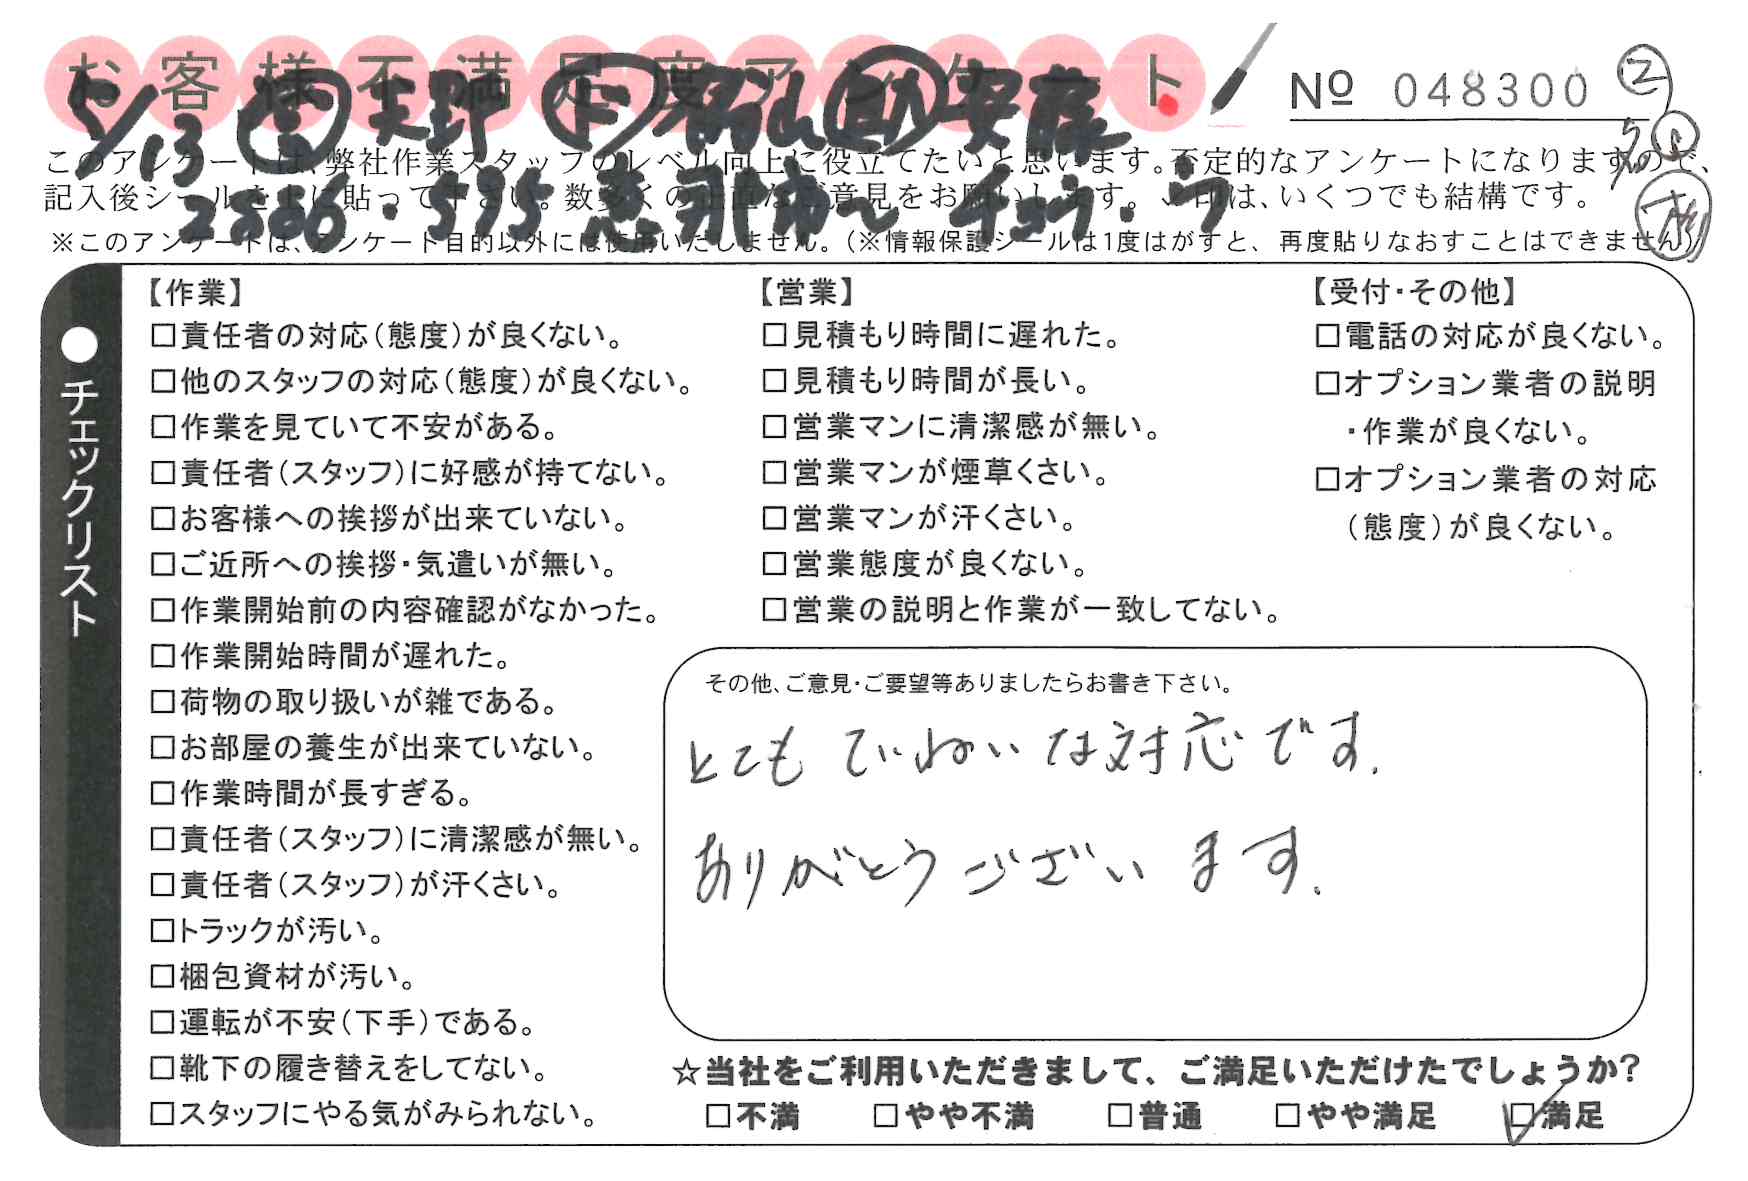 お客様不満足度アンケート
№ 048300 ②
5/13 天野 安藤
このアンケートは、弊社作業スタッフのレベル向上に役立てたいと思います。否定的なアンケートになりますので、
記入後シールを上に貼って下さい。数多くの正直なご意見をお願いします。✓印は、いくつでも結構です。
※このアンケートは、アンケート目的以外には使用いたしません。(※情報保護シールは1度はがすと、再度貼りなおすことはできません)
●チェックリスト
【作業】
□責任者の対応(態度)が良くない。
□他のスタッフの対応(態度)が良くない。
□作業を見ていて不安がある。
□責任者(スタッフ)に好感が持てない。
□お客様への挨拶が出来ていない。
□ご近所への挨拶・気遣いが無い。
□作業開始前の内容確認がなかった。
□作業開始時間が遅れた。
□荷物の取り扱いが雑である。
□お部屋の養生が出来ていない。
□作業時間が長すぎる。
□責任者(スタッフ)に清潔感が無い。
□責任者(スタッフ)が汗くさい。
□トラックが汚い。
□梱包資材が汚い。
□運転が不安(下手)である。
□靴下の履き替えをしてない。
□スタッフにやる気がみられない。
【営業】
□見積もり時間に遅れた。
□見積もり時間が長い。
□営業マンに清潔感が無い。
□営業マンが煙草くさい。
□営業マンが汗くさい。
□営業態度が良くない。
□営業の説明と作業が一致してない。
【受付・その他】
□電話の対応が良くない。
□オプション業者の説明
・作業が良くない。
□オプション業者の対応
(態度)が良くない。
その他、ご意見・ご要望等ありましたらお書き下さい。
とても ていねいな対応です.
ありがとうございます.
☆当社をご利用いただきまして、ご満足いただけたでしょうか?
□不満 □やや不満 □普通 □やや満足 ☑満足